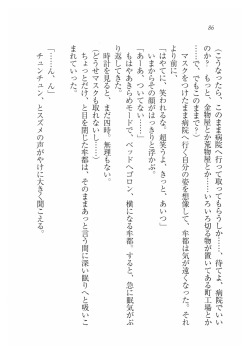 86
(こうなったら、このまま病院へ行って取ってもらうしか……。待てよ、病院でいい
のか? もっと、金物屋とか荒物屋とか……いろいろ切る物が置いてある町工場とか
……で、でもこのままで?)
マスクをつけたまま病院へ行く自分の姿を想像して、牢都は気が遠くなった。それ
より前に、
「はやてに、笑われるな、超笑うよ、きっと、あいつ」
いまからその顔がはっきりと浮かぶ。
「あーあ、ついてない」
もはやあきらめモードで、ベッドへゴロン、横になる牢都。すると、急に眠気がぶ
り返してきた。
時計を見ると、まだ四時。無理もない。
(どうせマスクも取れないし……)
ちょっとだけ、と目を閉じた牢都は、そのままあっと言う間に深い眠りへと吸いこ
まれていった。
「……ん、ん」
チュンチュン、とスズメの声がやけに大きく聞こえる。